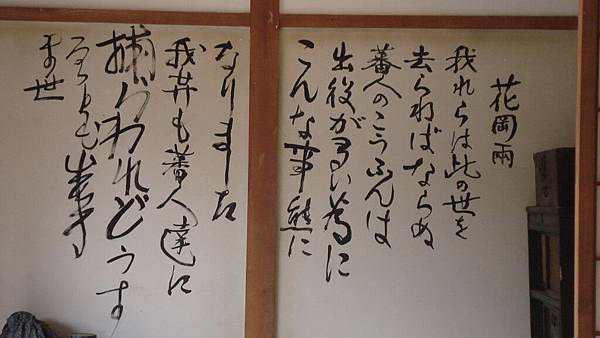 花岡両
我れらは此の世を
去らねばならぬ
蕃人のこうふんは
出役が多い為に
こんな事態に
なりました
我等も蕃人達に
捕らわれどうす
ることも出来
ません